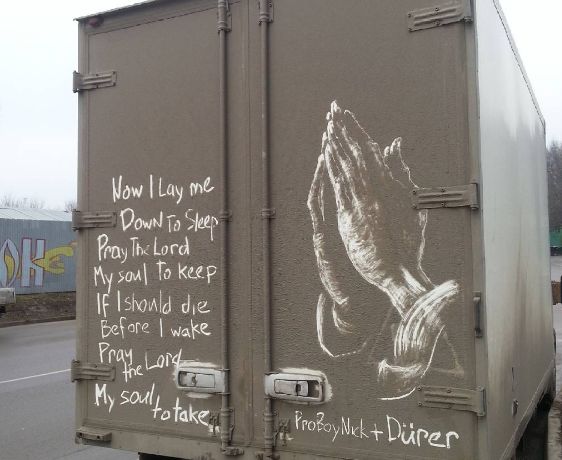 Now I Lay me
Down To Sleep
Pray The Lord
My soul to keep
If I should die
Before I wake
Pray
the Lord
My soul
to take
ProBoyNick + Dürer